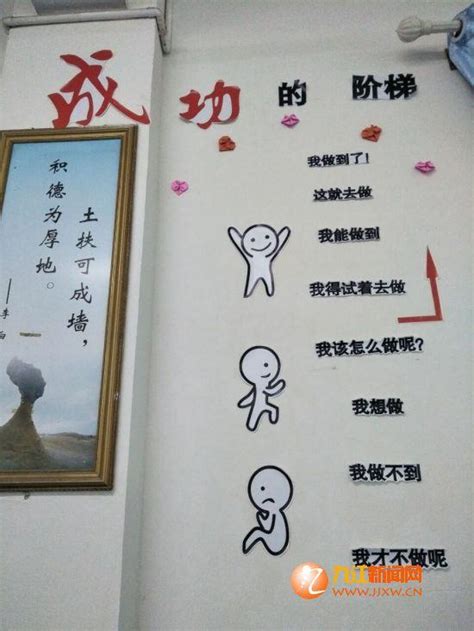 成功的阶梯
我做到了!
这就去做
我能做到
我得试着去做
我该怎么做呢?
我想做
我做不到
我才不做呢
土扶可成墙，
积德为厚地。
——李白
九江新闻网
WWW.JJXW.CN